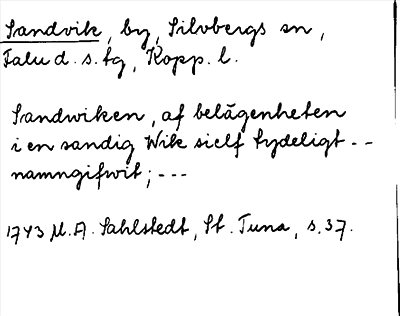 Sandvik, by, Silvbergs sn,
Falu d. s. tg, Kopp. l.
Sandwiken, af belägenheten
i en sandig Wik sielf tydeligt --
namngifwit; ---
1743 M. A. Sahlstedt, St. Tuna, s. 37.